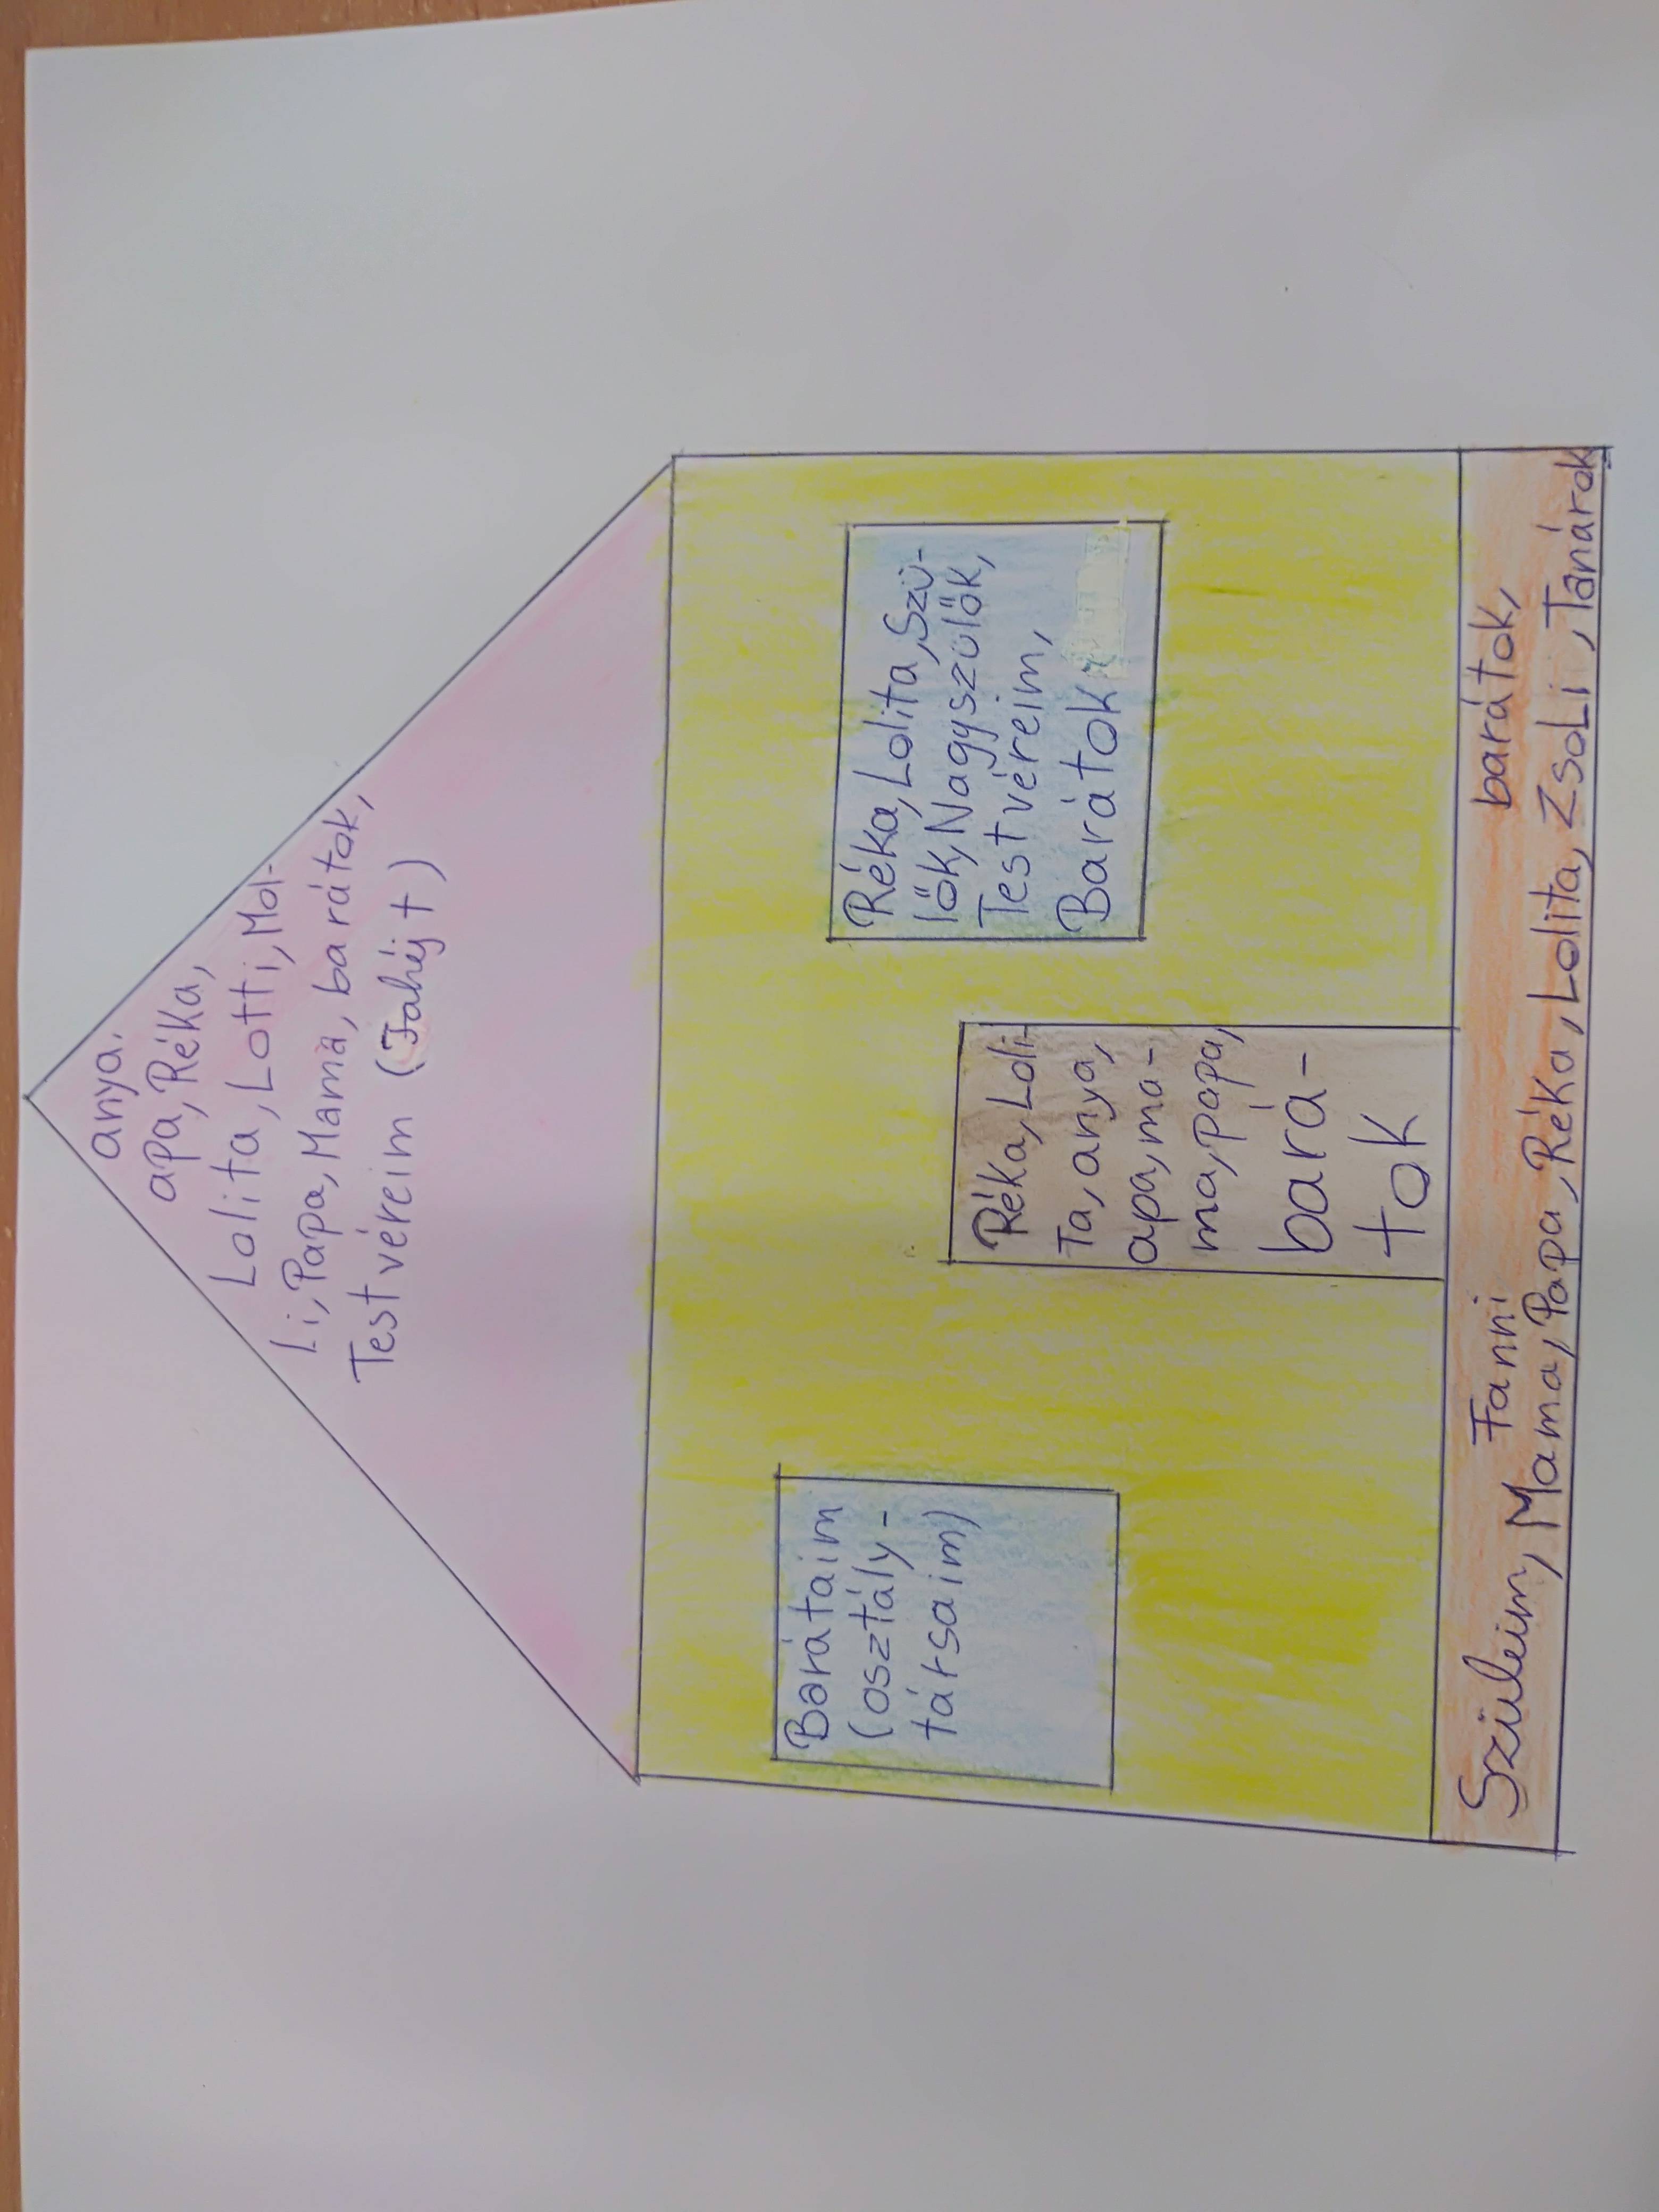 anya,
apa, Réka,
Lolita, Lotti, Mol-
li, Papa, Mama, barátok,
Testvéreim (Fahéj †)
Barátaim
(osztály-
társaim)
Réka, Loli-
Ta, anya,
apa, ma-
ma, papa,
bará-
tok
Réka, Lolita, Szü-
lők, Nagyszülők,
Testvéreim,
Barátok
Fanni barátok,
Szüleim, Mama, Papa, Réka, Lolita, Zsoli, Tanárok